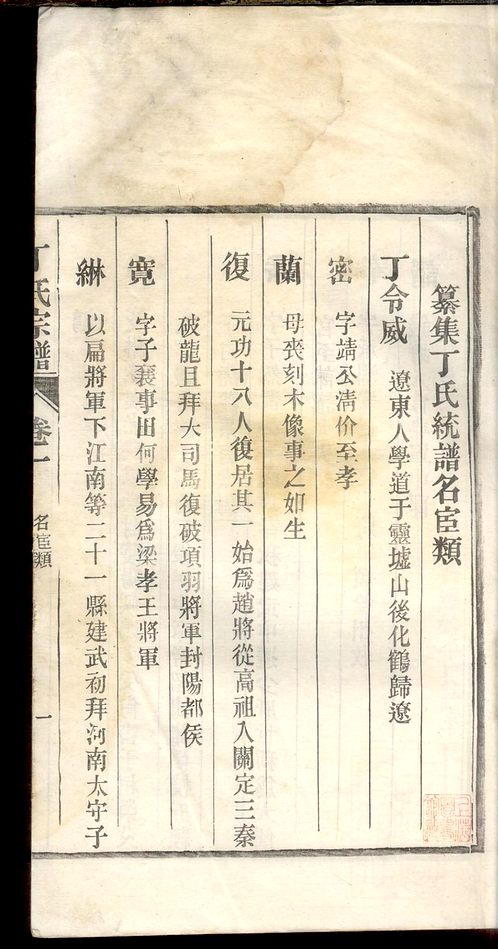 纂集丁氏統譜名宦類
丁令威 遼東人學道于靈墟山後化鶴歸遼
密 字靖公清价至孝
蘭 母喪刻木像事之如生
復 元功十八人復居其一始爲趙將從高祖入關定三秦
破龍且拜大司馬復破項羽將軍封陽都侯
寬 字子襄事田何學易爲梁孝王將軍
綝 以扁將軍下江南等二十一縣建武初拜河南太守子
丁氏宗譜 卷一 名宦類 一